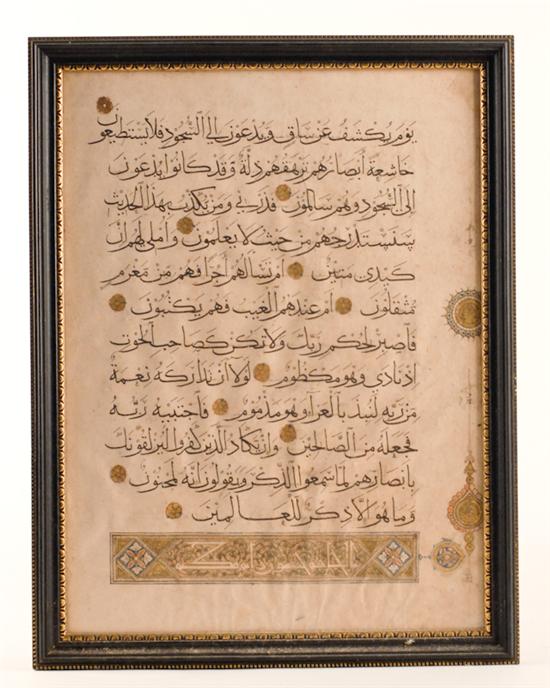 يوم يكشف عن ساق ويدعون إلى السجود فلا يستطيعون
خاشعة أبصارهم ترهقهم ذلة وقد كانوا يدعون
إلى السجود وهم سالمون فذرني ومن يكذب بهذا الحديث
سنستدرجهم من حيث لا يعلمون وأملي لهم إن
كيدي متين أم تسألهم أجرا فهم من مغرم
مثقلون أم عندهم الغيب فهم يكتبون
فاصبر لحكم ربك ولا تكن كصاحب الحوت
إذ نادى وهو مكظوم لولا أن تداركه نعمة
من ربه لنبذ بالعراء وهو مذموم فاجتبيه ربه
فجعله من الصالحين وإن يكاد الذين كفروا ليزلقونك
بأبصارهم لما سمعوا الذكر ويقولون إنه لمجنون
وما هو إلا ذكر للعالمين